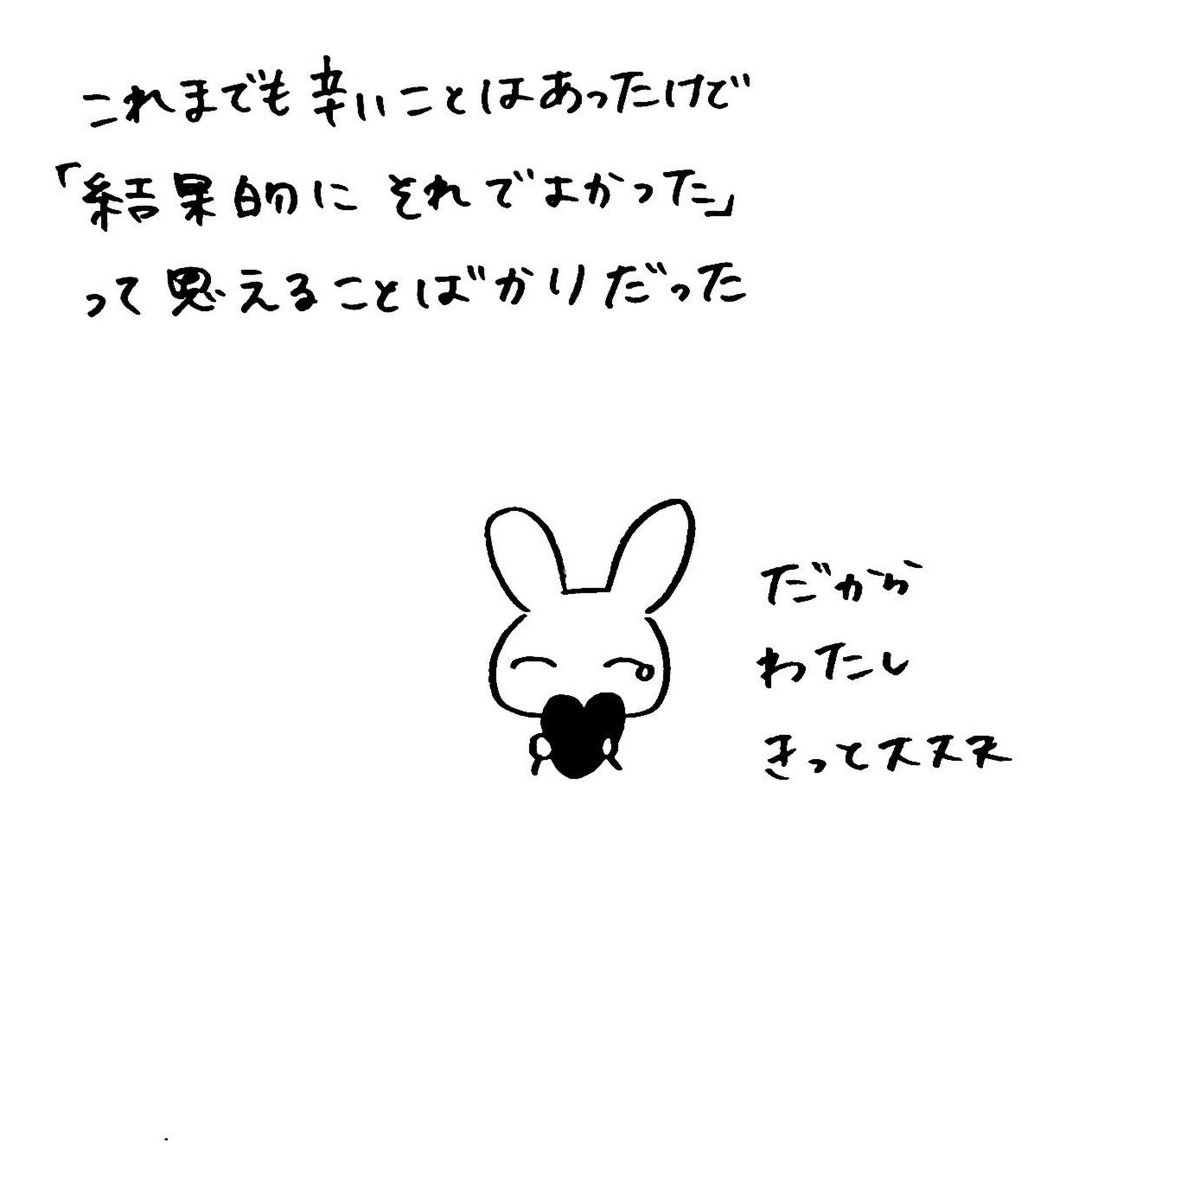 これまでも辛いことはあったけど
「結果的に それでよかった」
って思えることばかりだった
だから
わたし
きっと大丈夫